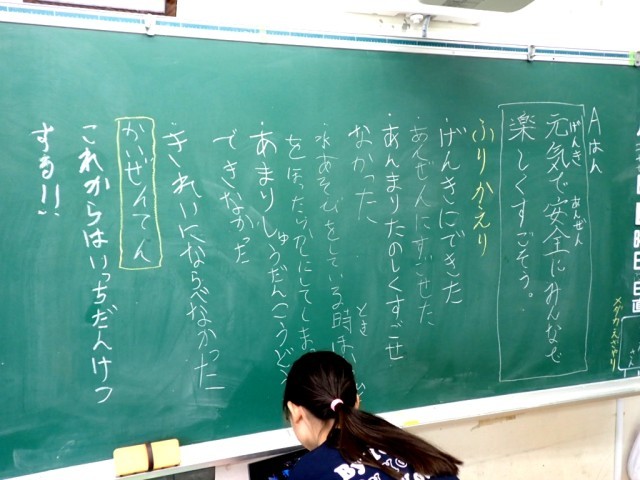 Aはん
元気で安全にみんなで
げんき
あんぜん
楽しくすごそう。
ふりかえり
・げんきにできた
・あんぜんにすごせた
・あんまりたのしくすごせ
なかった
・水あそびをしている時は、
とき
をほったらかしにしてしま
・あまりしゅうだんこうどう
できなかった
・きれいにならべなかった
かいぜんてん
これからはいっちだんけつ
する!!